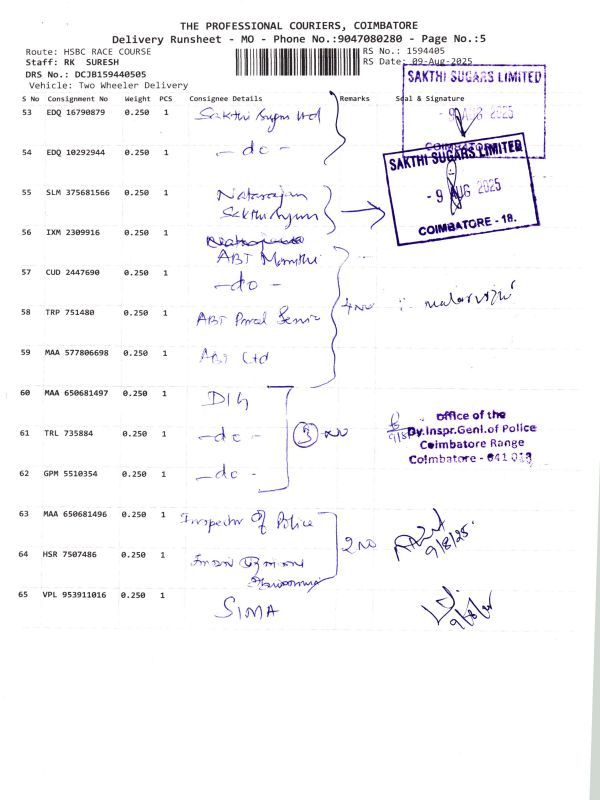 THE PROFESSIONAL COURIERS, COIMBATORE
Delivery Runsheet - MO - Phone No.:9047080280 - Page No.:5
Route: HSBC RACE COURSE
RS No.: 1594405
Staff: RK SURESH
RS Date: 09-Aug-2025
DRS No.: DCJB159440505
Vehicle: Two Wheeler Delivery
SAKTHI SUGARS LIMITED
- 9 AUG 2025
COIMBATORE
S No Consignment No Weight PCS Consignee Details Remarks Seal & Signature
53 EDQ 16790879 0.250 1 Sakthi Sugar Ltd
54 EDQ 10292944 0.250 1 - do -
SAKTHI SUGARS LIMITED
- 9 AUG 2025
COIMBATORE - 18.
55 SLM 375681566 0.250 1 Natarajan
Sakthi Sugar
56 IXM 2309916 0.250 1
ABT Maruthi
57 CUD 2447690 0.250 1 - do -
58 TRP 751480 0.250 1 ABT Parcel Service 4 no
59 MAA 577806698 0.250 1 ABT Ltd
60 MAA 650681497 0.250 1 DIG
61 TRL 735884 0.250 1 - do - 3 no
office of the
Dy.Inspr.Genl.of Police
Coimbatore Range
Coimbatore - 641 018
62 GPM 5510354 0.250 1 - do -
63 MAA 650681496 0.250 1 Inspector Of Police
2 no
9/8/25
64 HSR 7507486 0.250 1
65 VPL 953911016 0.250 1 SIMA
9/8/25